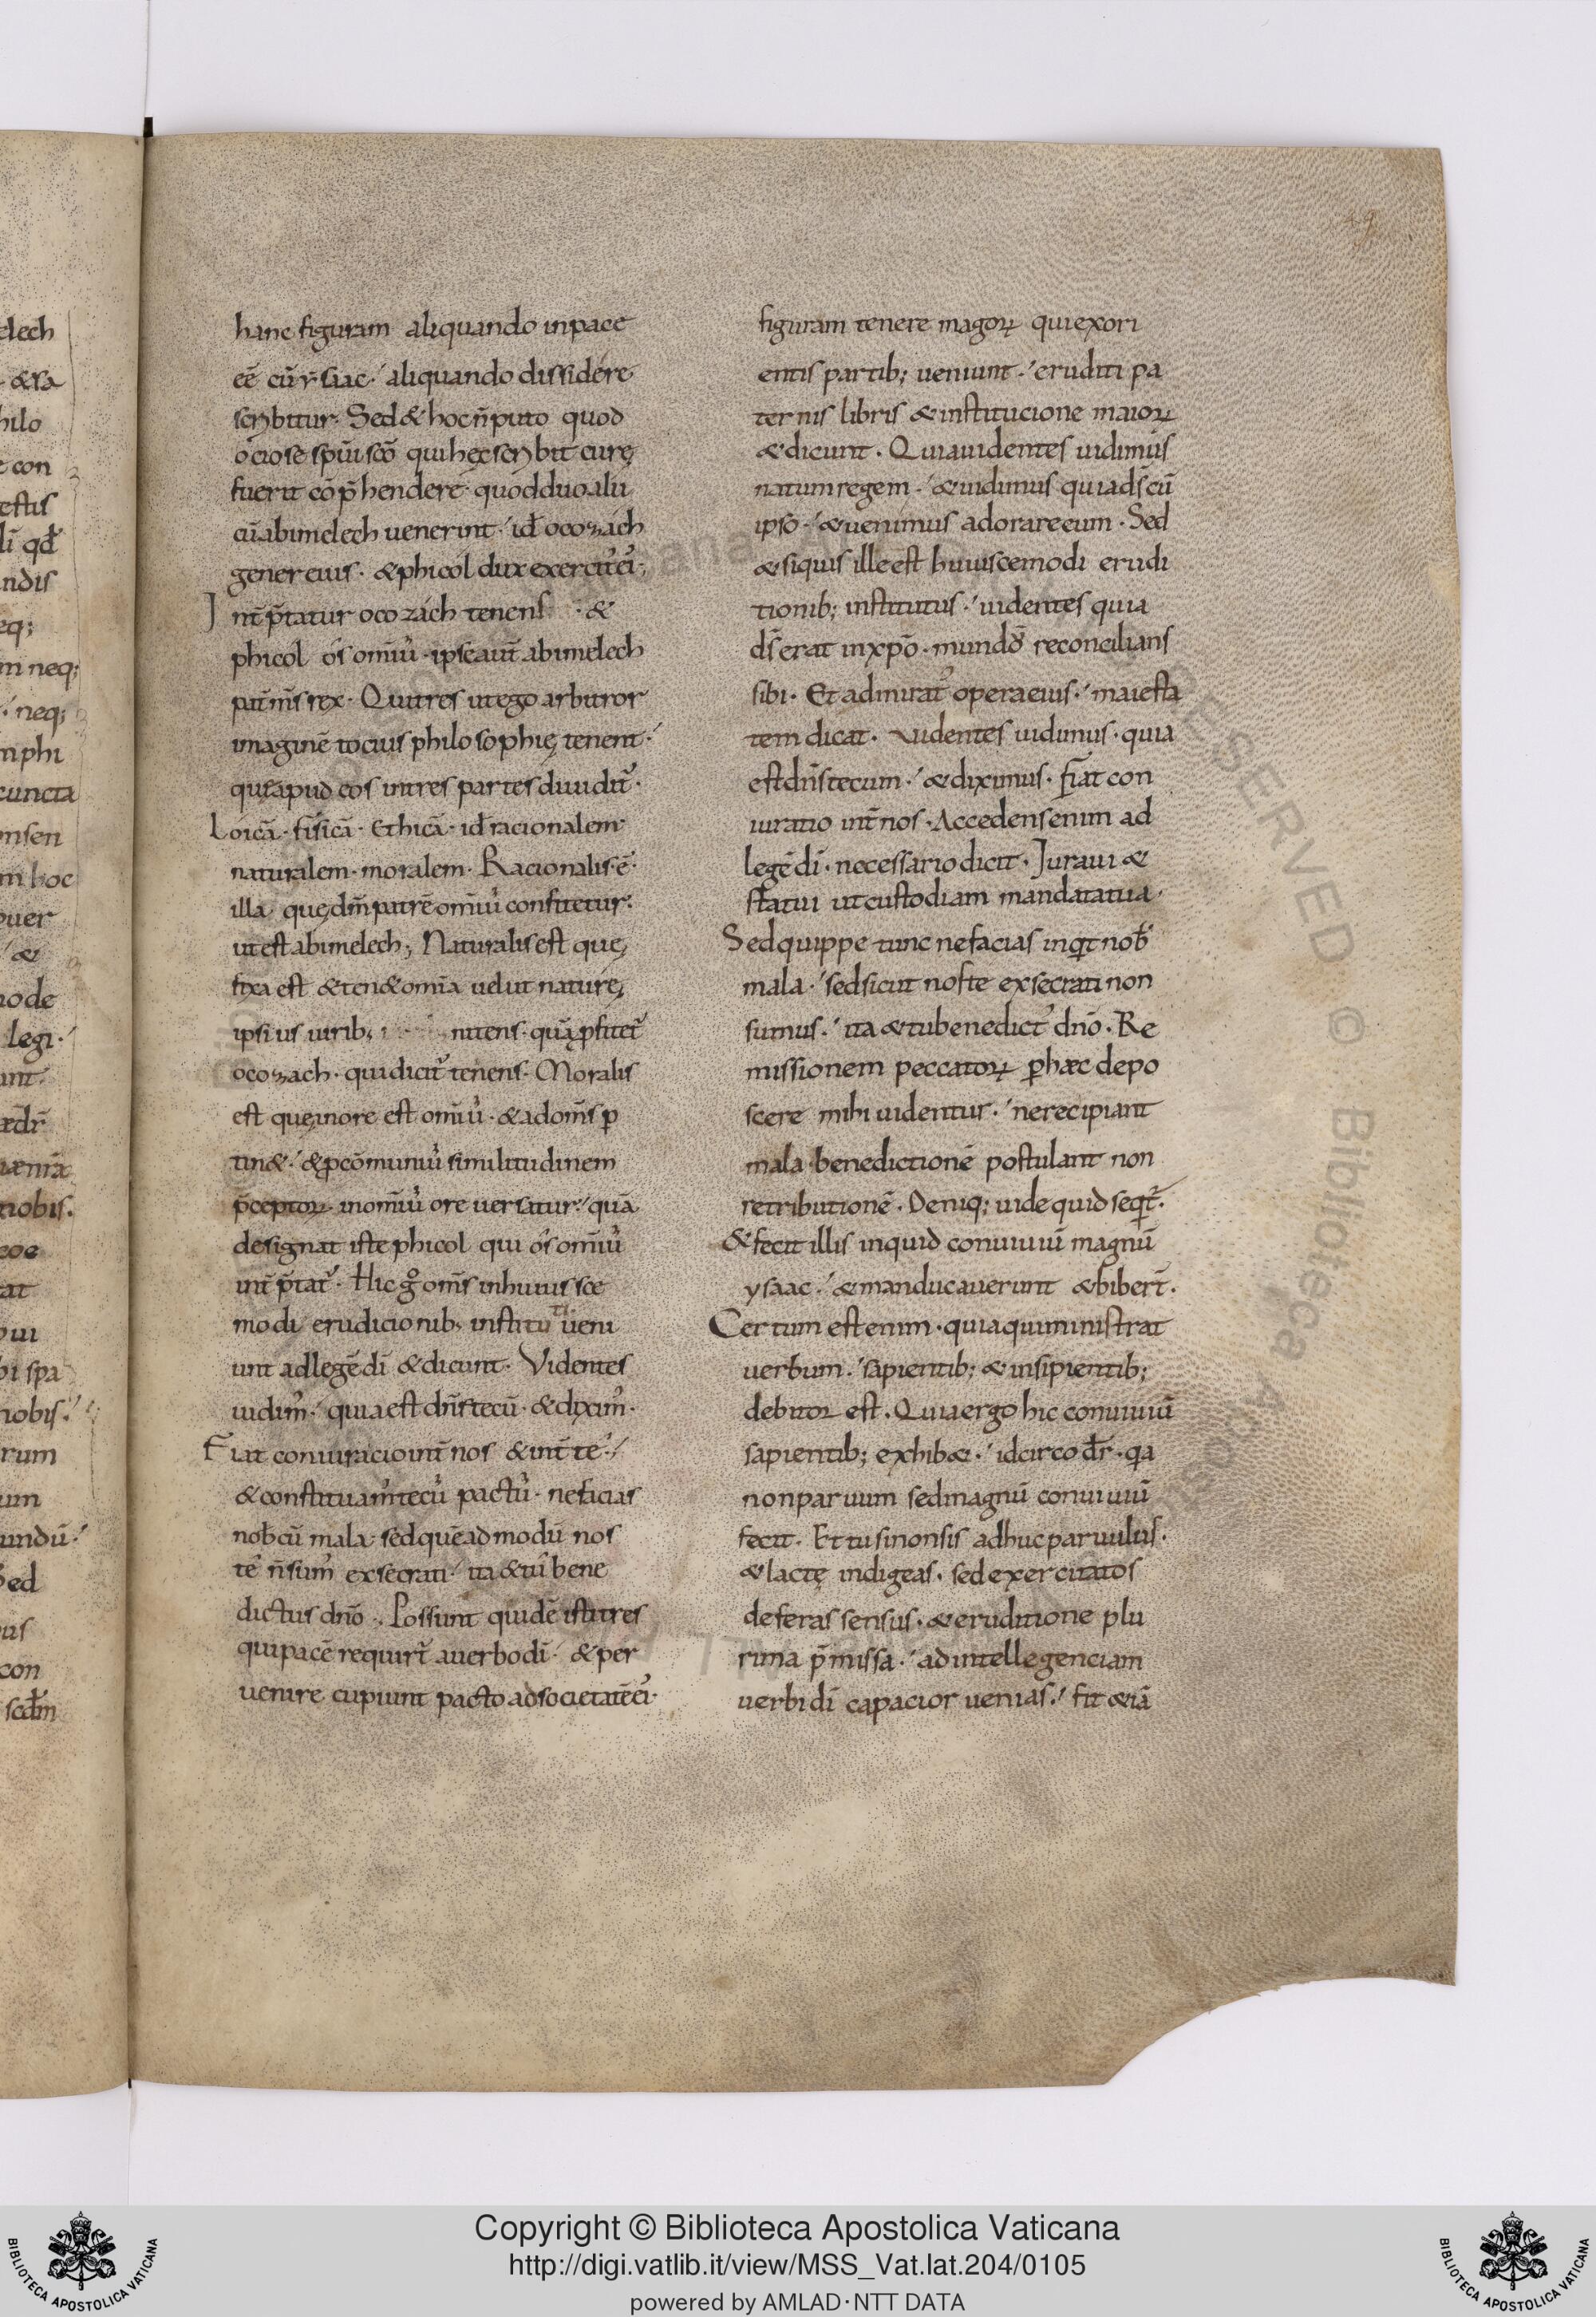 hanc figuram aliquando inpace
eē cū ysaac· aliquando dissidere
scribitur· Sed & hoc n̄ puto quod
ociose spūi scō qui hęc scribit curę
fuerit cōp̄hendere· quod duo alii
cū abimelech uenerint· id ocozach
gener eius· & phicol dux exercitˀ eiˀ·
Int̄p̄tatur ocozach tenens · &
phicol os omīuˀ· ipse aut̄ abimelech
pat̄ m̄s rex· Qui tres ut ego arbitror
imaginē tocius philosophię tenent·
quę apud eos in tres partes diuiditˀ·
Loicā· fisicā· Ethicā· id racionalem·
naturalem· moralem· Racionalis· ē·
illa quę dm̄ patrē omīuˀ confitetur·
ut est abimelech; Naturalis est quę
fixa est & ten& omīa uelut naturę
ipsius uirib; nitens· quā p̄fitetˀ
ocozach· qui dicitˀ tenens· Moralis
est quę in ore est omīuˀ· & ad om̄s p
tin&· & p cōmuniuˀ similitudinem
p̄ceptoꝝ in omīuˀ ore uersatur· quā
designat iste phicol qui os omīuˀ
int̄p̄tatˀ· Hic gͦ om̄s in huiusce
modi erudicionib; institu ti ueni
unt ad legē dī & dicunt· Videntes
uidimˀ· quia est dn̄s tecū· & diximˀ·
Fiat coniuracio int̄ nos & int̄ te·
& constituamˀ tecuˀ pactuˀ· ne facias
nob cū mala· sed quēadmodū nos
te n̄ sumˀ exsecrati· ita & tu bene
dictus dnō· Possunt quidē isti tres
qui pacē requirt̄ a uerbo dī· & per
uenire cupiunt pacto ad societatē eiˀ·
figuram tenere magoꝝ qui ex ori
entis partib; ueniunt· eruditi pa
ternis libris & institucione maioꝝ
& dicunt· Quia uidentes uidimus
natum regem· & uidimus quia ds̄ cū
ipso· & uenimus adorare eum· Sed
& siquis ille est huiuscemodi erudi
tionib; institutus· uidentes quia
ds̄ erat in xpō· mundū reconcilians
sibi· Et admiratˀ opera eius· maiesta
tem dicat· Uidentes uidimus· quia
est dn̄s tecum· & diximus· Fiat con
iuratio int̄ nos· Accedens enim ad
legē dī· necessario dicit· Iuraui &
statui ut custodiam mandata tua·
Sed quippe tunc ne facias inqt nob
mala· sed sicut nos te exsecrati non
sumus· ita & tu benedictˀ dnō· Re
missionem peccatoꝝ p hæc depo
scere mihi uidentur· ne recipiant
mala· benedictionē postulant non
retributionē· Deniq; uide quid seqt̄·
& fecit illis inquid conuiuiū magnū
ysaac· & manducauerunt & bibert̄·
Certum est enim· quia qui ministrat
uerbum· sapientib; & insipientib;
debitor est· Quia ergo hic conuiuiū
sapientib; exhib&· idcirco dr̄· qa
non paruum sed magnū conuiuiū
fecit· Et tu si non sis adhuc paruulus·
& lacte indigeas· sed exercitatos
deferas sensus· & eruditione plu
rima p̄missa· ad intellegenciam
uerbi dī capacior uenias· fit &iā
SERVED © Biblioteca Apostolica
Copyright © Biblioteca Apostolica Vaticana
http://digi.vatlib.it/view/MSS_Vat.lat.204/0105
powered by AMLAD·NTT DATA
BIBLIOTECA APOSTOLICA VATICANA
BIBLIOTECA APOSTOLICA VATICANA